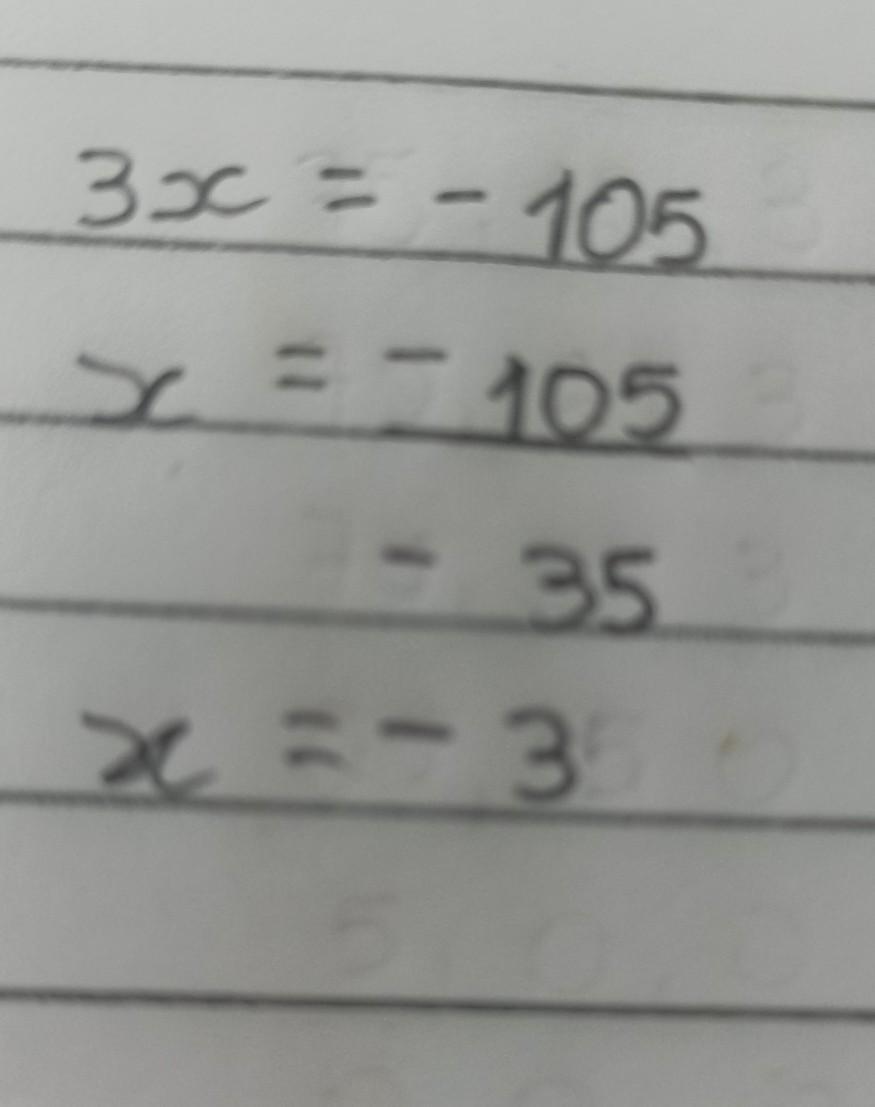 3x = - 105
x = - 105
- 35
x = - 3